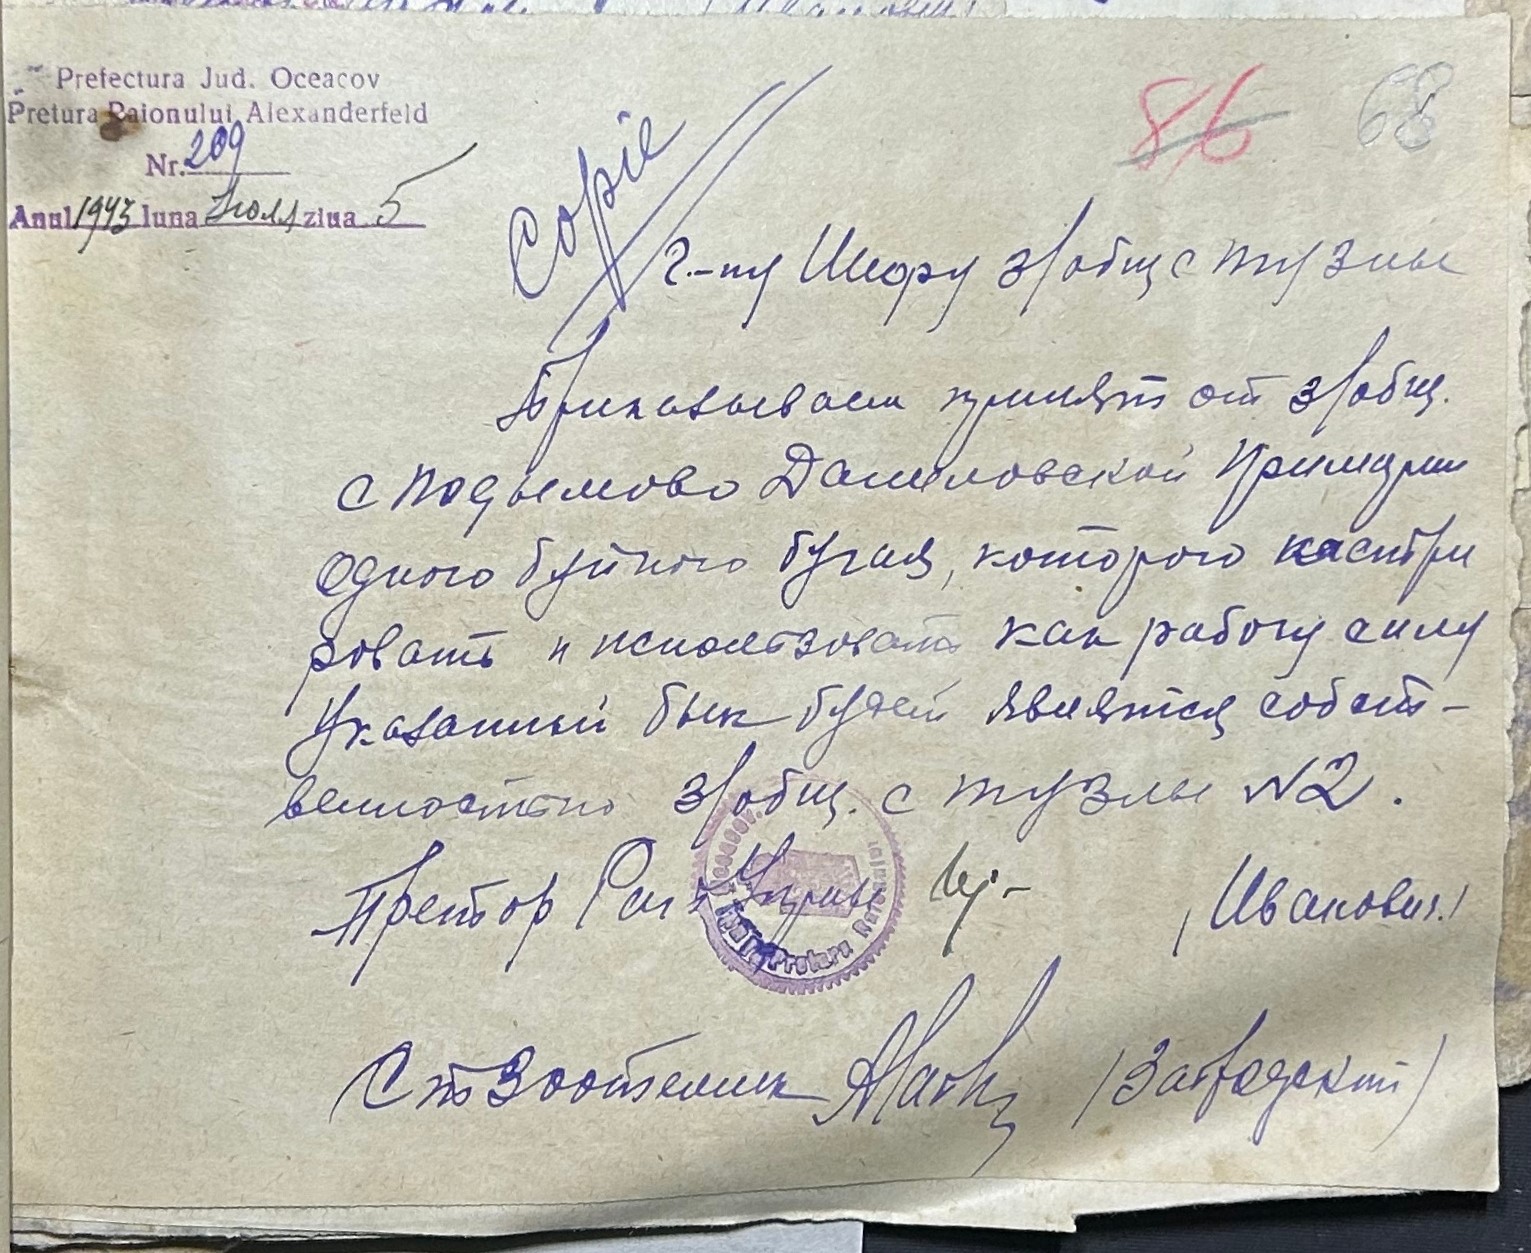 Prefectura Jud. Oceacov
Pretura Raionului Alexanderfeld
Nr. 209
Anul 1943 luna Июля ziua 5
Copie
86
68
г-ну Шефу з/общ с тузлы
Приказываем принять от з/общ.
с Подымово Даниловской Примарии
одного буйного бугая, которого кастри
ровать и использовать как рабочу силу
Указанный бык будет являтся собст-
венностью з/общ. с тузлы N2.
Претор Рай Управы
(Иванович)
Ст Зоотехник (Завадский)
Pretura